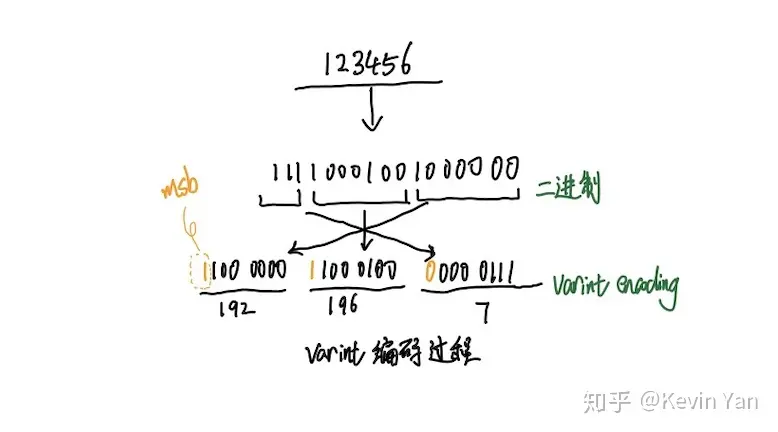 123456
111 1000100 1000000 二进制
msb
1100 0000 1100 0100 0000 0111 Varint encoding
192 196 7
Varint 编码过程
知乎 @Kevin Yan